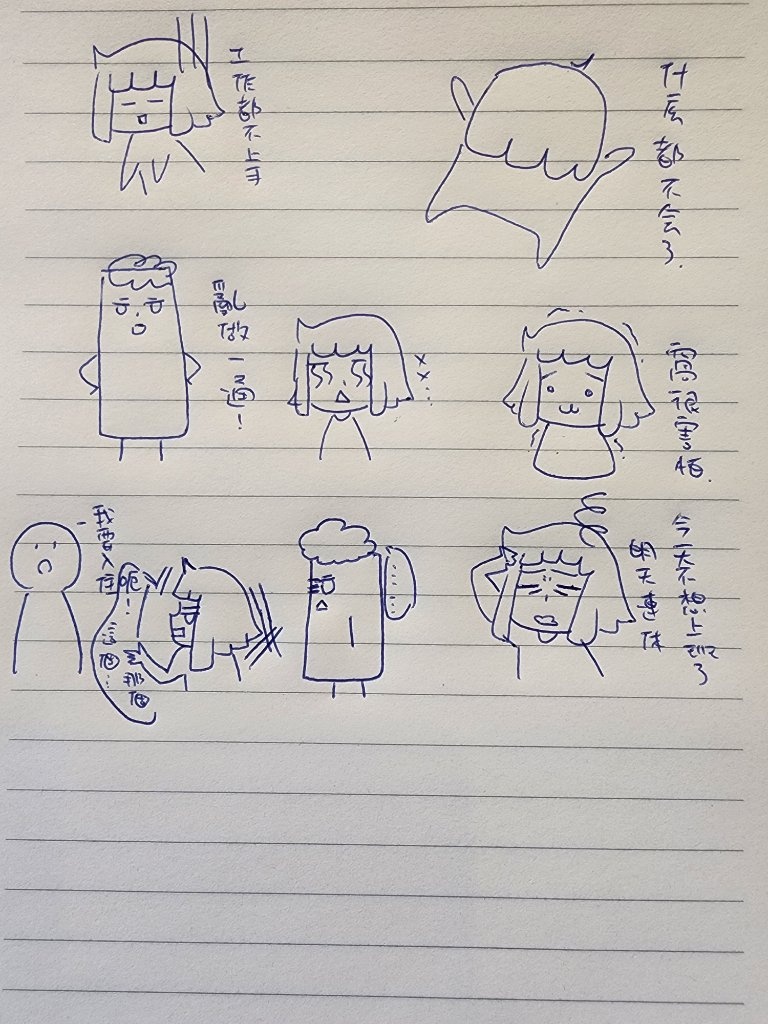 什么都不会了.
工作都不上手
窩很害怕.
××...
亂做一通!
今天不想上班了
明天連休
......
呃!
這個...
那個
我要入住